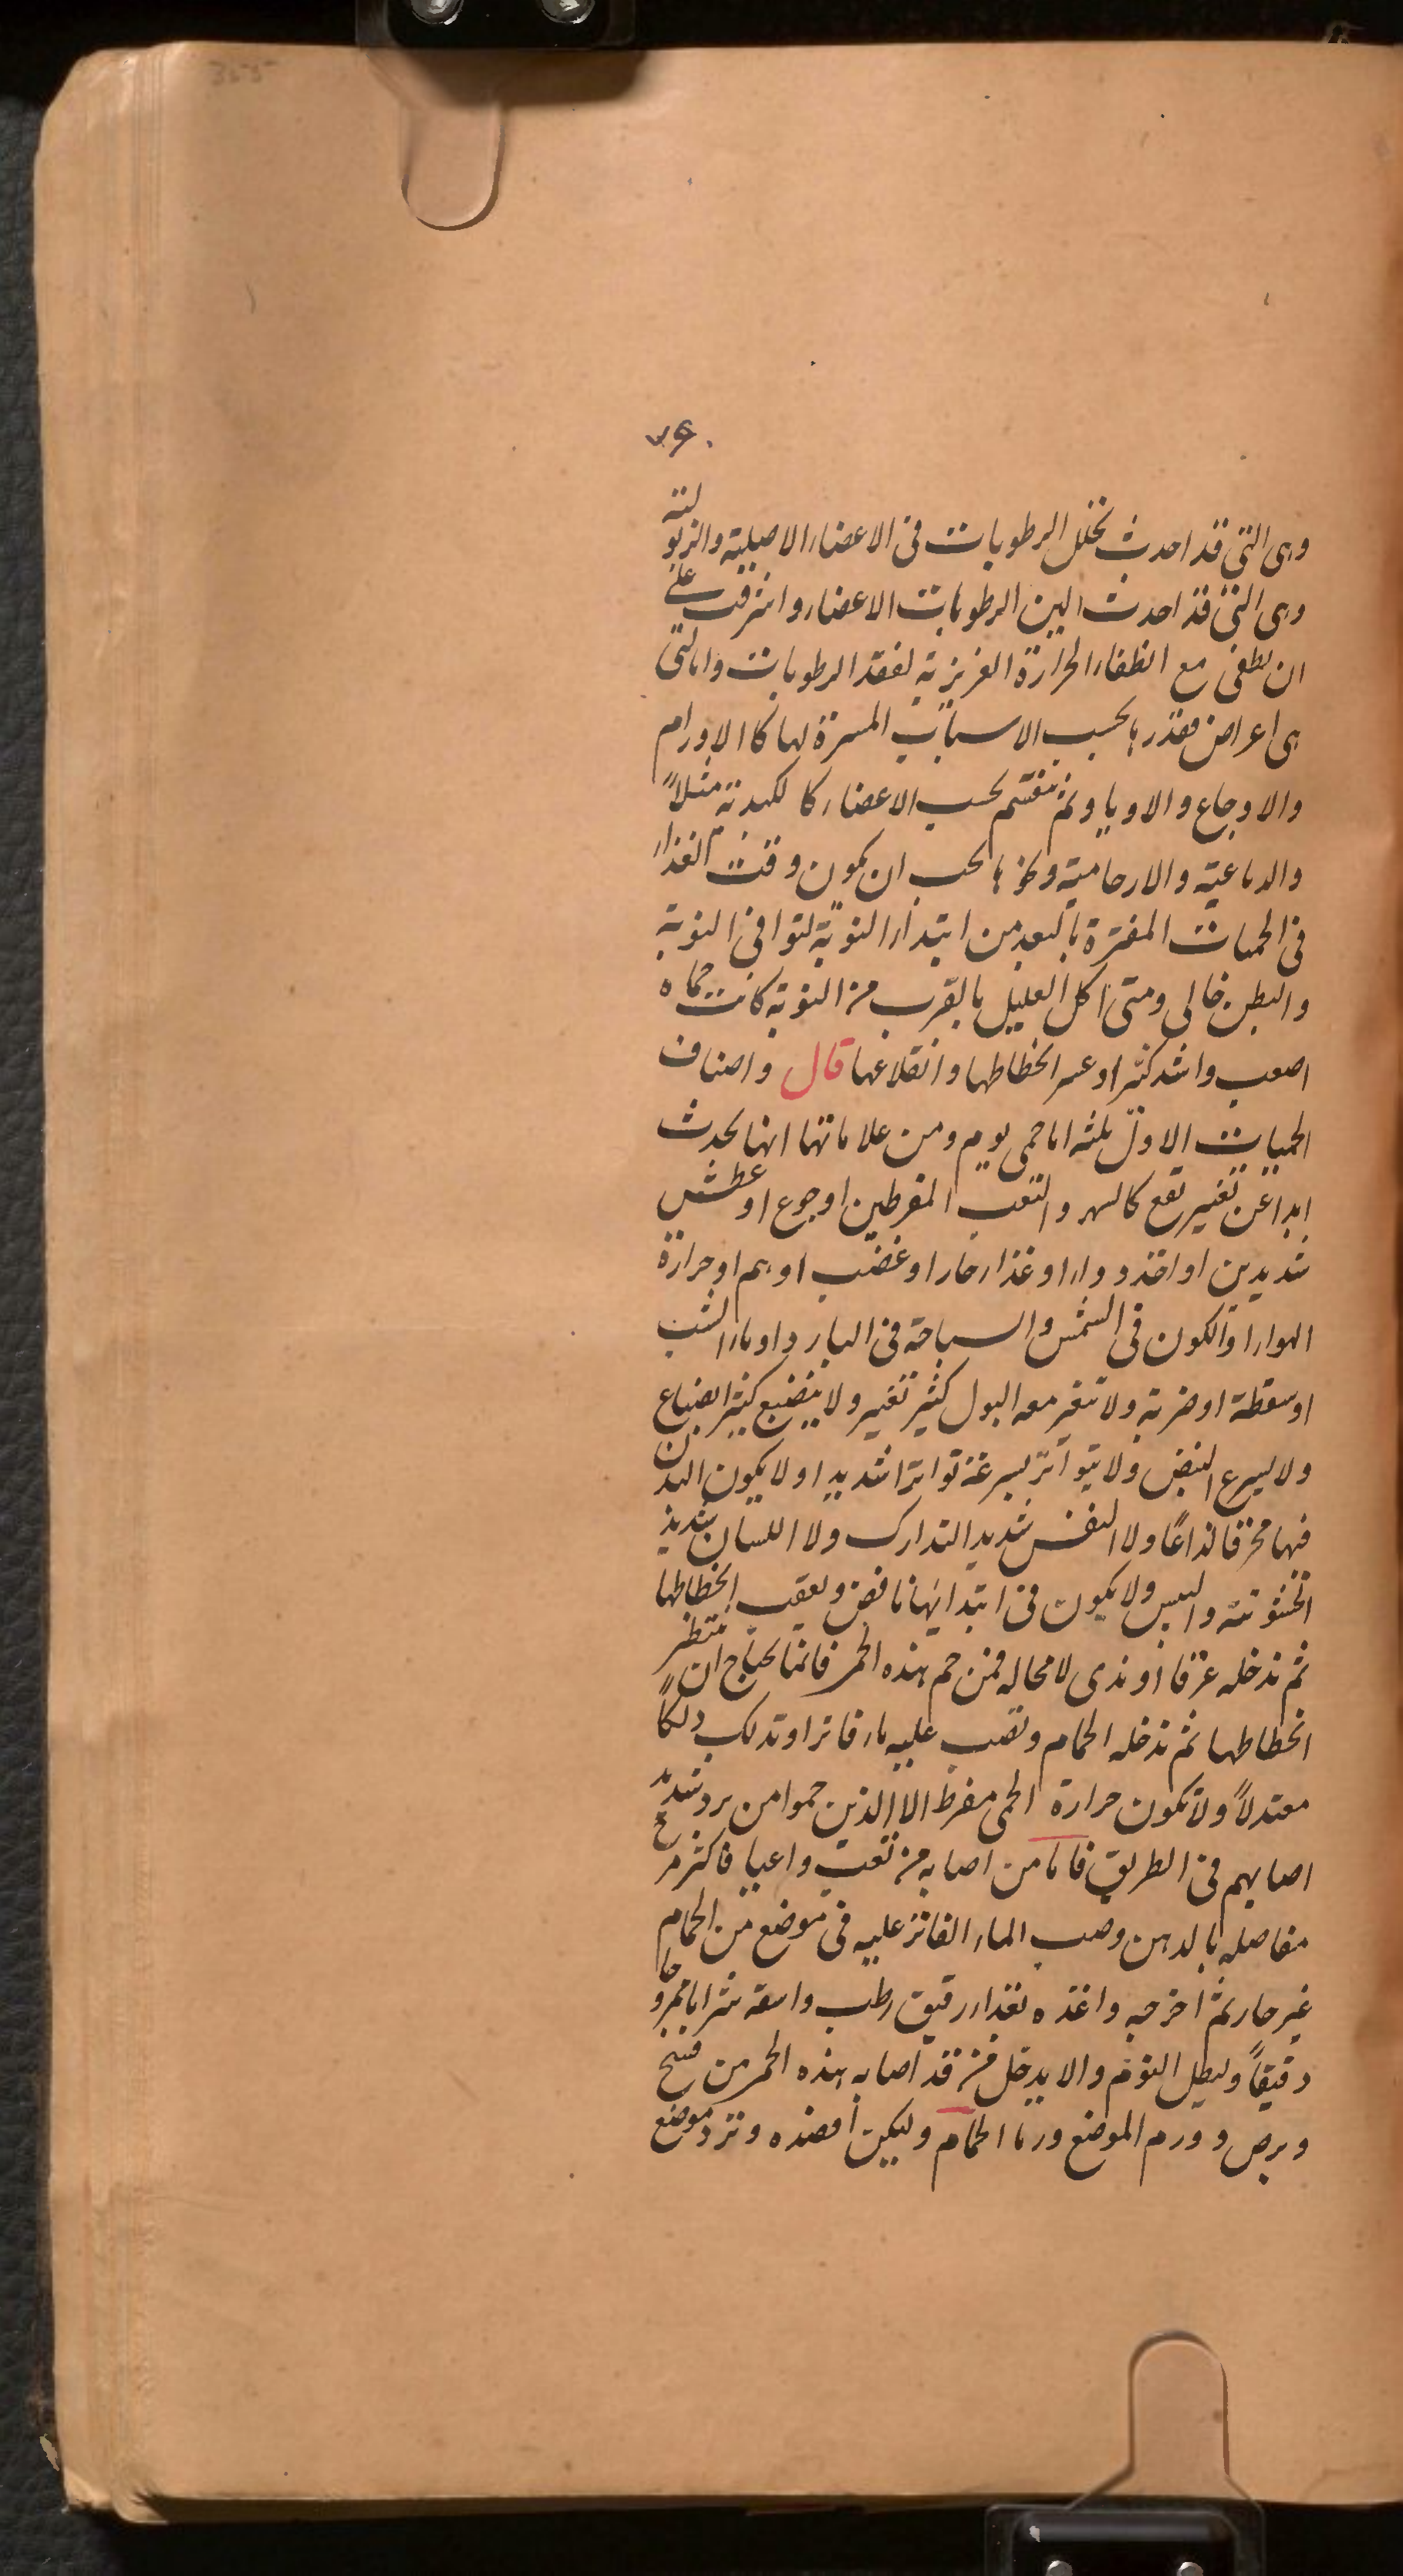 ٧٤٠
وهى التى قد احدث تخلل الرطوبات فى الاعضاء الاصلية والذبولية
وهى التى قد احدث الين الرطوبات الاعضاء واشرقت على
ان تطفى مع انطفاء الحرارة الغريزية لفقد الرطوبات واما التى
هى اعراض فقدرها بحسب الاسباب المسرة لها كالاورام
والاوجاع والاوباو ثم تنقسم بحسب الاعضاء كالكبدية مثلاً
والدماغية والارحامية ونحوها يجب ان يكون وقت الغذاء
فى الحميات المفترة بالبعد من ابتداء النوبة لتوافى النوبة
والبطن خالى ومتى اكل العليل بالقرب من النوبة كانت حماه
اصعب واشد كثيرا وعسر انحطاطها وانقلاعها قال واصناف
الحميات الاول ثلثه اما حمى يوم ومن علاماتها انها تحدث
ابدا عن تغيير تقع كالسهر والتعب المفرطين او جوع او عطش
شديدين او اخذ دواء او غذاء حار او غضب او هم او حرارة
الهواء او الكون فى الشمس والسباحة فى البارد او ماء الشب
او سقطة او ضربة ولا تتغير معه البول كثير تغيير ولا ينصبغ كثير انصباغ
ولا يسرع النبض ولا يتواتر بسرعة تواترا شديدا ولا يكون البدن
فيها محرقا لذاعًا ولا النفس شديد التدارك ولا اللسان شديد
الخشونة واليبس ولا يكون فى ابتدائها نافض ويعقب انحطاطها
ثم تدخله عرقا او ندى لا محاله فمن حم هذه الحمى فانما يحتاج ان تنتظر
انحطاطها ثم تدخله الحمام وتصب عليه ماء فاترا وتدلك دلكاً
معتدلاً ولا تكون حرارة الحمى مفرط الا الذين حموا من برد شديد
اصابهم فى الطريق فاما من اصابه من تعب واعيا فاكثر مرخ
مفاصله بالدهن وصب الماء الفاتر عليه فى موضع من الحمام
غير حار ثم اخرجه واغذه بغذاء رقيق رطب واسقه شرابا ممزوجا
دقيقاً وليطل النوم والا يدخل من قد اصابه هذه الحمى من
وبرص وورم الموضع ورما الحمام وليكن افصده وتزد موضع